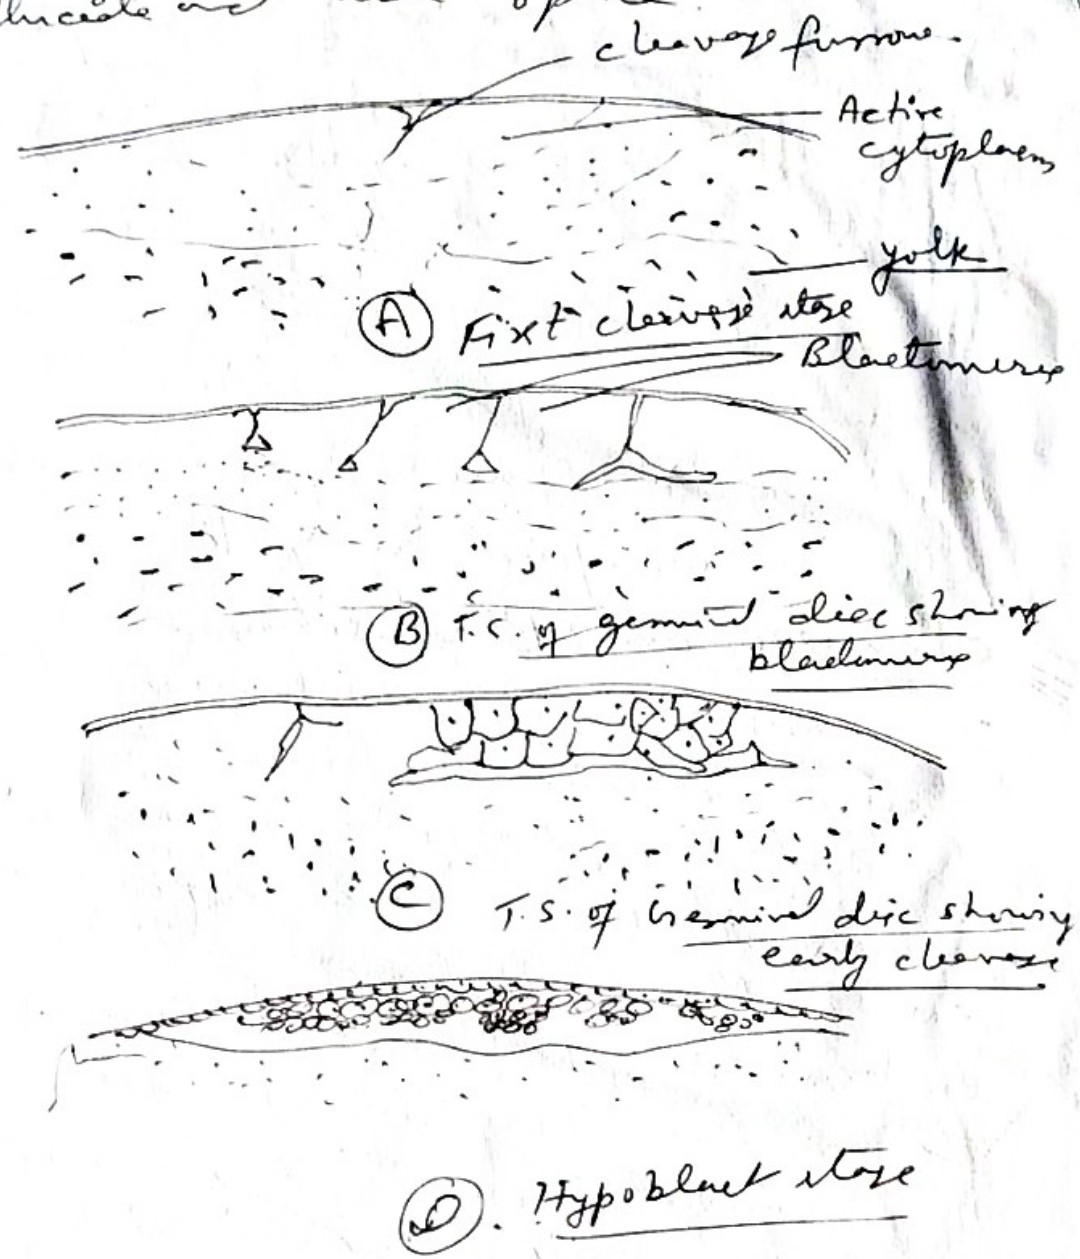 cleavage furrow.
Active
cytoplasm
yolk
(A) First cleavage stage
Blastomeres
(B) T.S. of germinal disc showing
blastomeres
(C) T.S. of Germinal disc showing
early cleavage
(D). Hypoblast stage